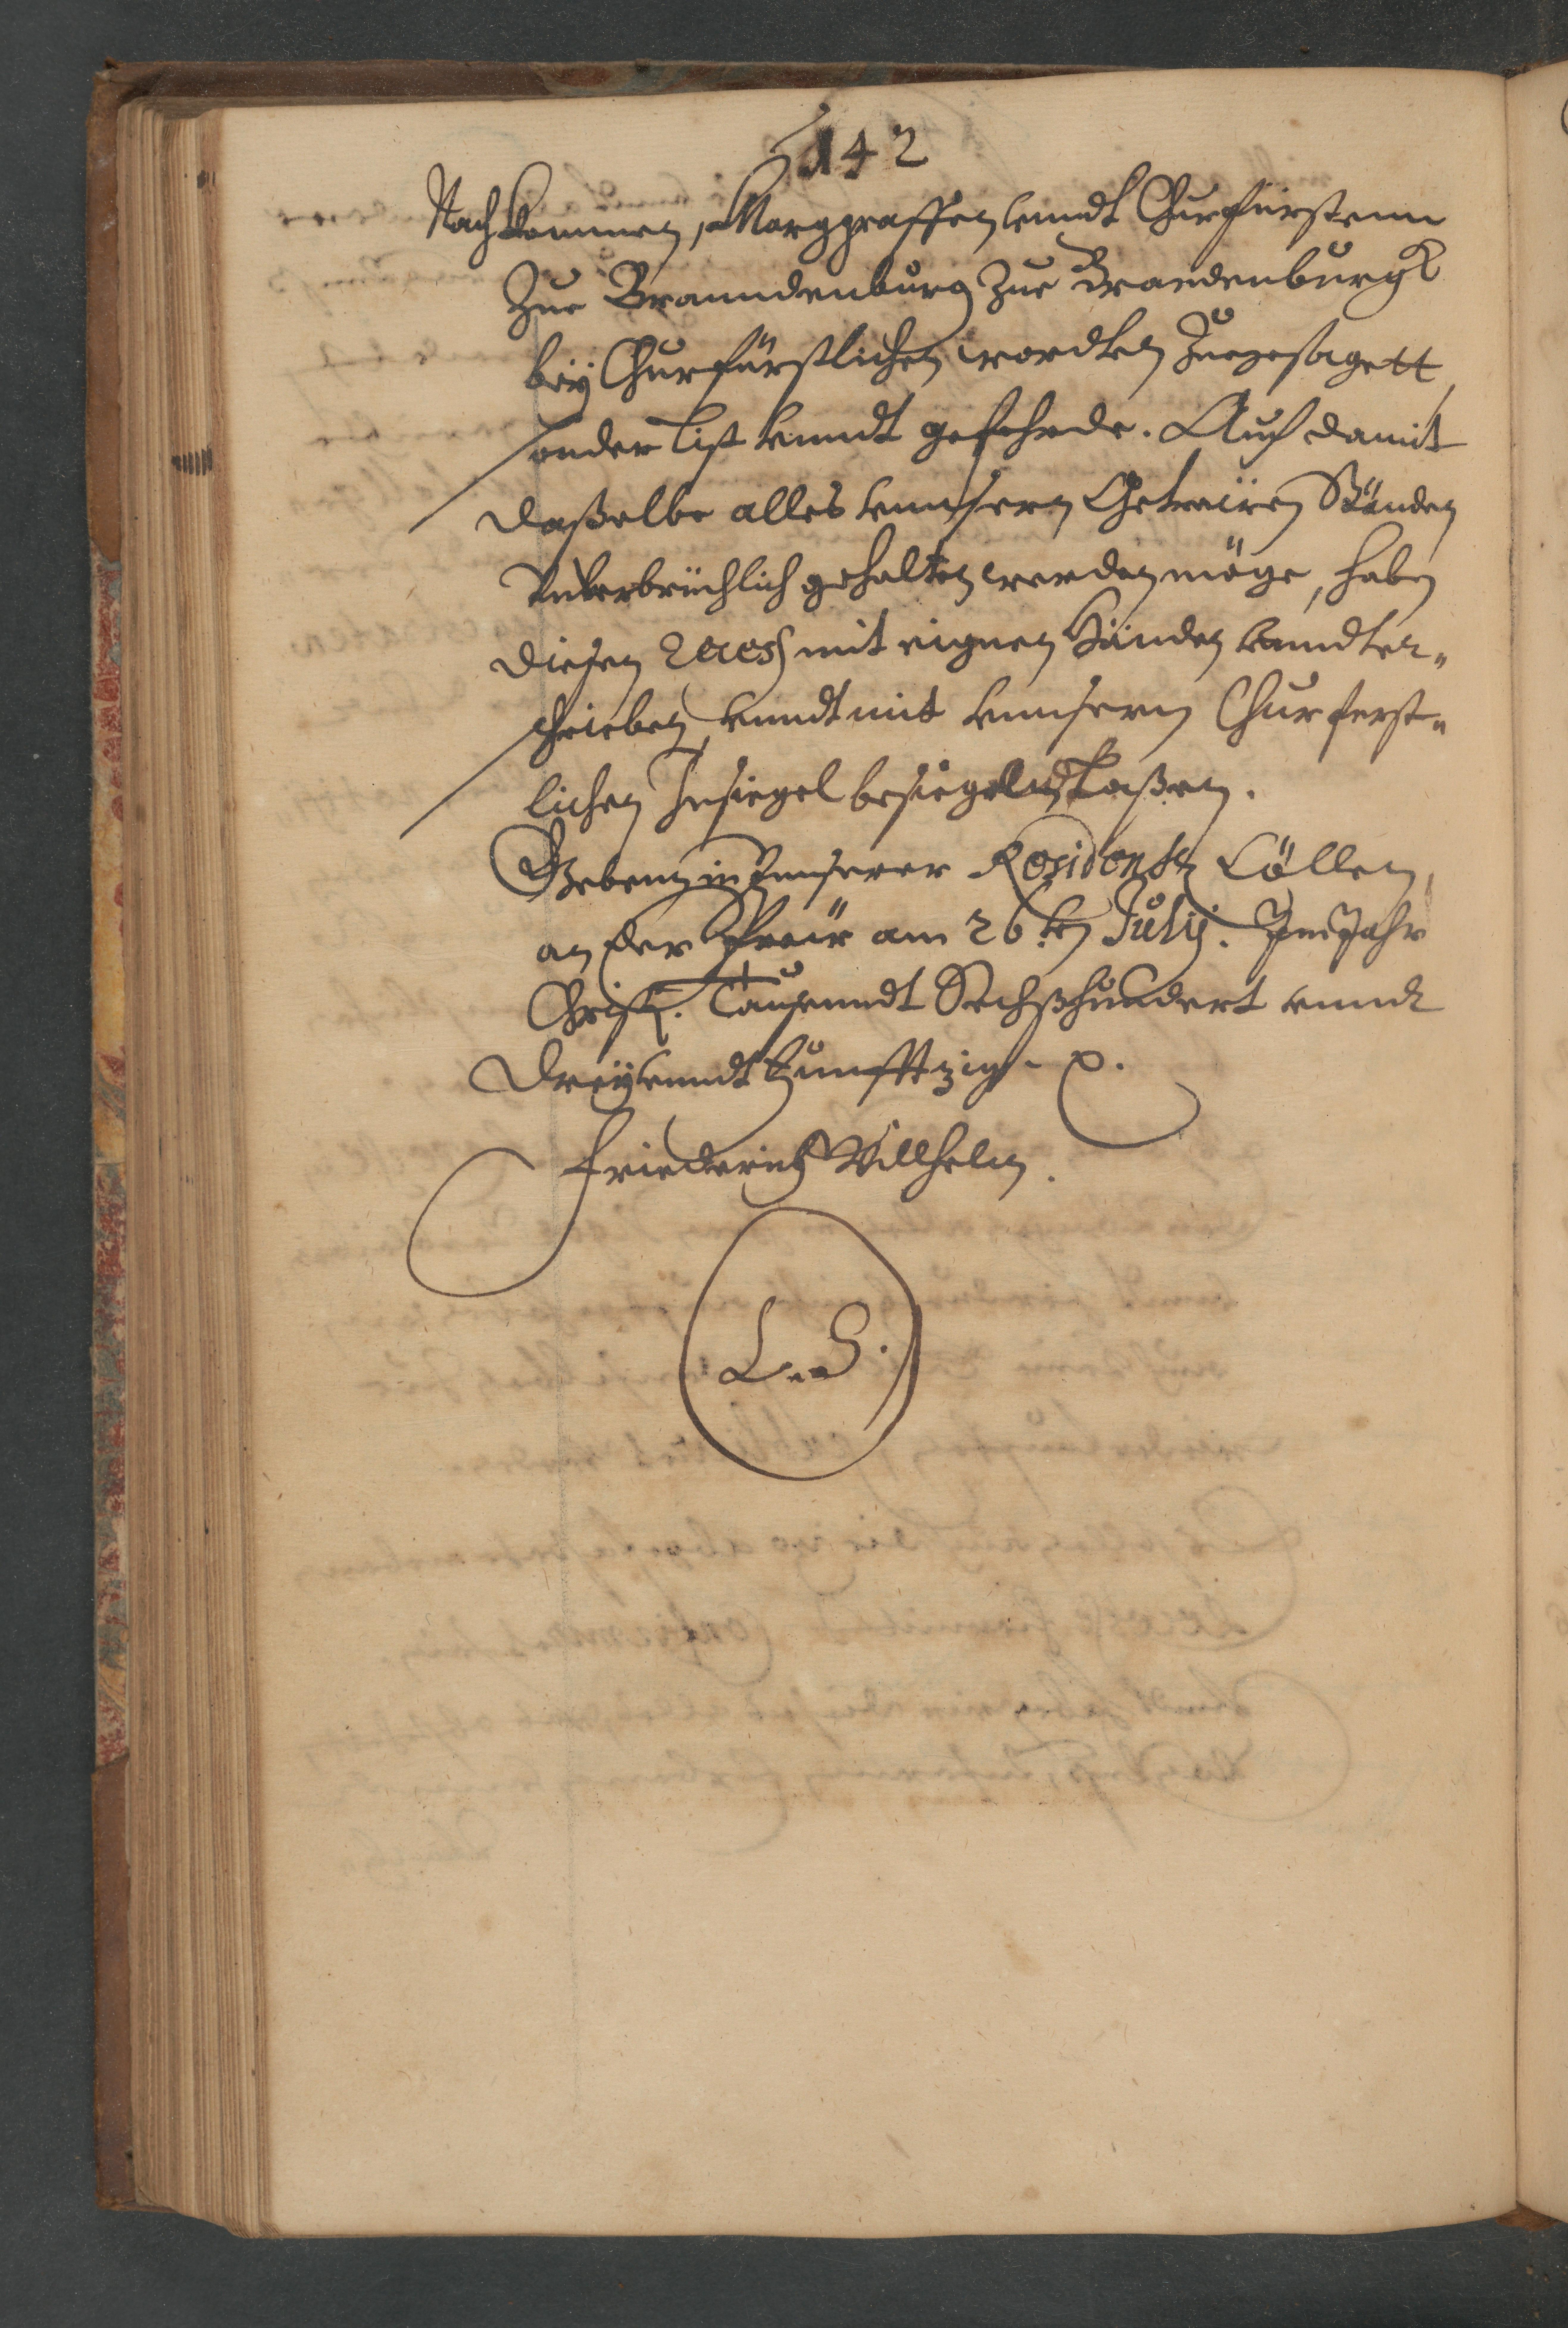 142
Nachkommen, Marggraffen unndt Churfürstenn
Zue Branndenburg Zue Brandenburgk
bey Churfürstlichen wordten Zuegesagett,
sonder list unndt gefehrde. Auch damit
daßelbe alles unnsern Getreüen Ständen
Unverbrüchlich gehalten werden möge, haben
diesen Recess mit eignen Händen unndter„
schrieben unndt mit unnserm Churferst„
lichen Insiegel besiegeln laßen.
Gebenn in Unnserer Residentz Cöllen
an der Spreü am 26 ten Julij. Im Jahr
Christi. Tausenndt Sechßhundert unndt
dreÿ unndt Funfftzig.
Friederich Willhelm.
L. S.